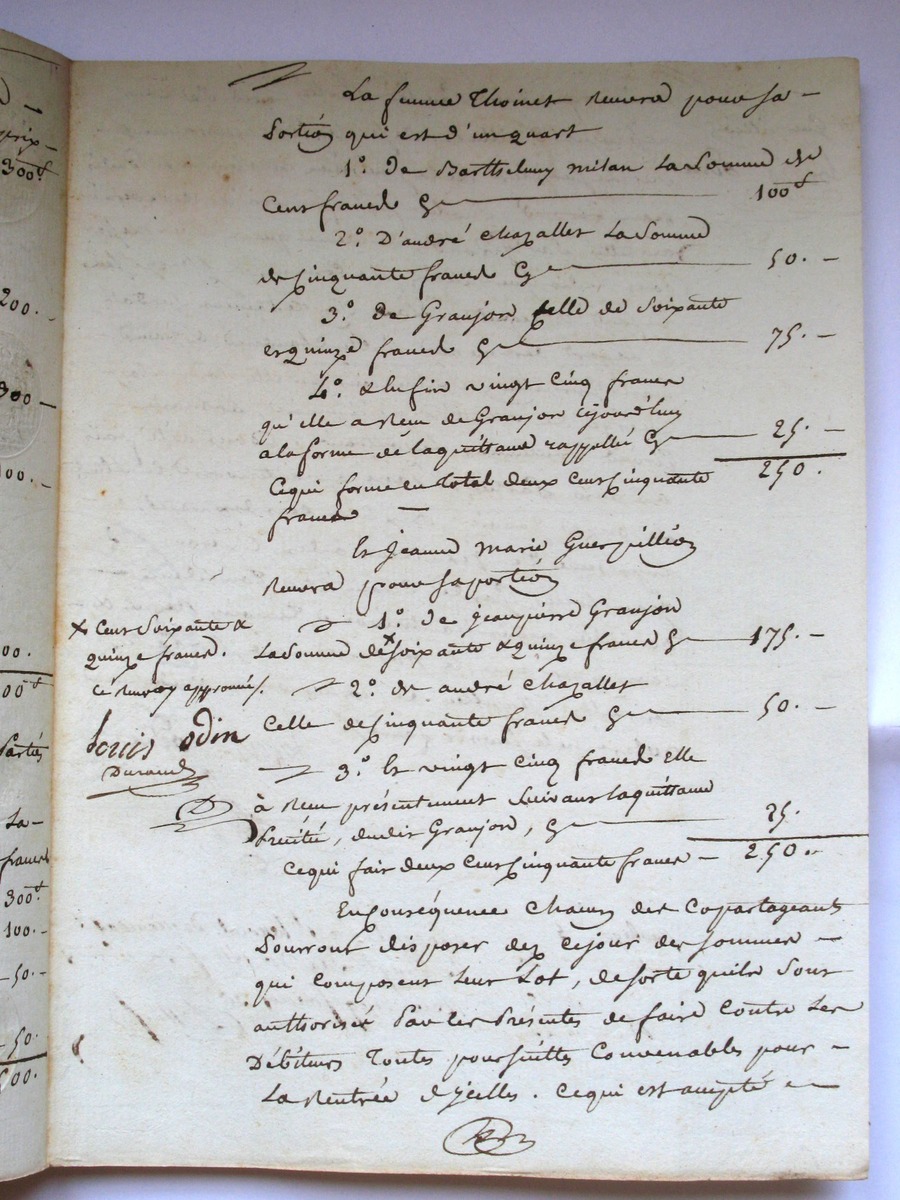 La femme Thoinet Recevra pour sa -
Portion qui est d'un quart
1º. de Barthelemy milan La Somme de
Cent francs Cy — 100 f
2º. D'andré Chazallet La Somme
de Cinquante francs Cy — 50. -
3º. de Granjon, Celle de Soixante
et quinze francs Cy — 75. -
4º. & Enfin vingt Cinq francs
qu'elle a Recu de Granjon Cejourd'huy
a la forme de la quittance rappellée Cy — 25. -
Ce qui forme en total deux Cent Cinquante 250.
francs —
Et Jeanne Marie Guerpillion
Recevra pour sa portion
1º. de Jean pierre Granjon
La Somme de x Soixante & quinze francs Cy — 175. -
2º. de andré Chazallet
Celle de Cinquante francs Cy — 50. -
3º. Et vingt Cinq francs Elle
à Recu présentement Suivant la quittance
Précitée, dudit Granjon, Cy — 25.
Ce qui fait deux Cent Cinquante francs — 250. -
En Conséquence Chacun des Copartageants
Pourront disposer dez Cejour des sommes -
qui Composent Leur Lot, de sorte qu'ils Sont
authorisés Par les Présentes de faire Contre Les
Débiteurs Toutes poursuittes Convenables pour -
La Rentrée d'Jcelles. Ce qui est accepté -
x Cent Soixante &
Quinze francs.
Ce Renvoy approuvé.
Louis Odin
Durand
prix -
300 f
200. -
300 -
100. -
00.
00 f
Partés
La -
francs
300 f
100. -
50. -
50. -
600.